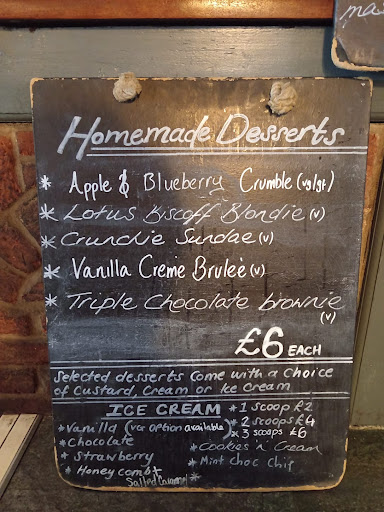 ma
Homemade Desserts
* Apple & Blueberry Crumble (vg/gf)
* Lotus Biscoff Blondie (v)
* Crunchie Sundae (v)
* Vanilla Creme Bruleè (v)
* Triple Chocolate brownie
(v)
£6 EACH
Selected desserts come with a choice
of Custard, Cream or Ice Cream
ICE CREAM
* 1 scoop £2
* 2 scoops £4
* 3 scoops £6
* Vanilla (option available)
* Chocolate
* Strawberry
* Honeycomb
Salted Caramel
* Cookies n' Cream
* Mint Choc Chip